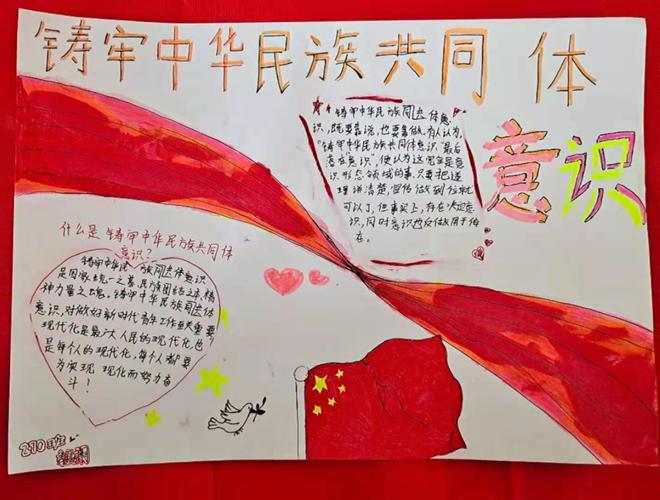 铸牢中华民族共同体
意识
铸牢中华民族同法体意
识,既要靠说,也要靠做。有人认为,
"铸牢中华民族共同体意识"最后
落在"意识",便认为这完全是意
识形态领域的事,只要把道
理讲清楚,宣传做到位就
可以了,但事实上,存在决定意
识,同时意识也反作用于存
在。
什么是铸牢中华民族共同体
意识?
铸牢中华民族同法体意识
是国家统一之基,民族团结之本,精
神力量之魂。铸牢中华民族同法体
意识,对做好新时代青年工作至关重要
现代化是最广大人民的现代化,也
是每个人的现代化,每个人都要
为实现现化而努力奋
斗!
270班